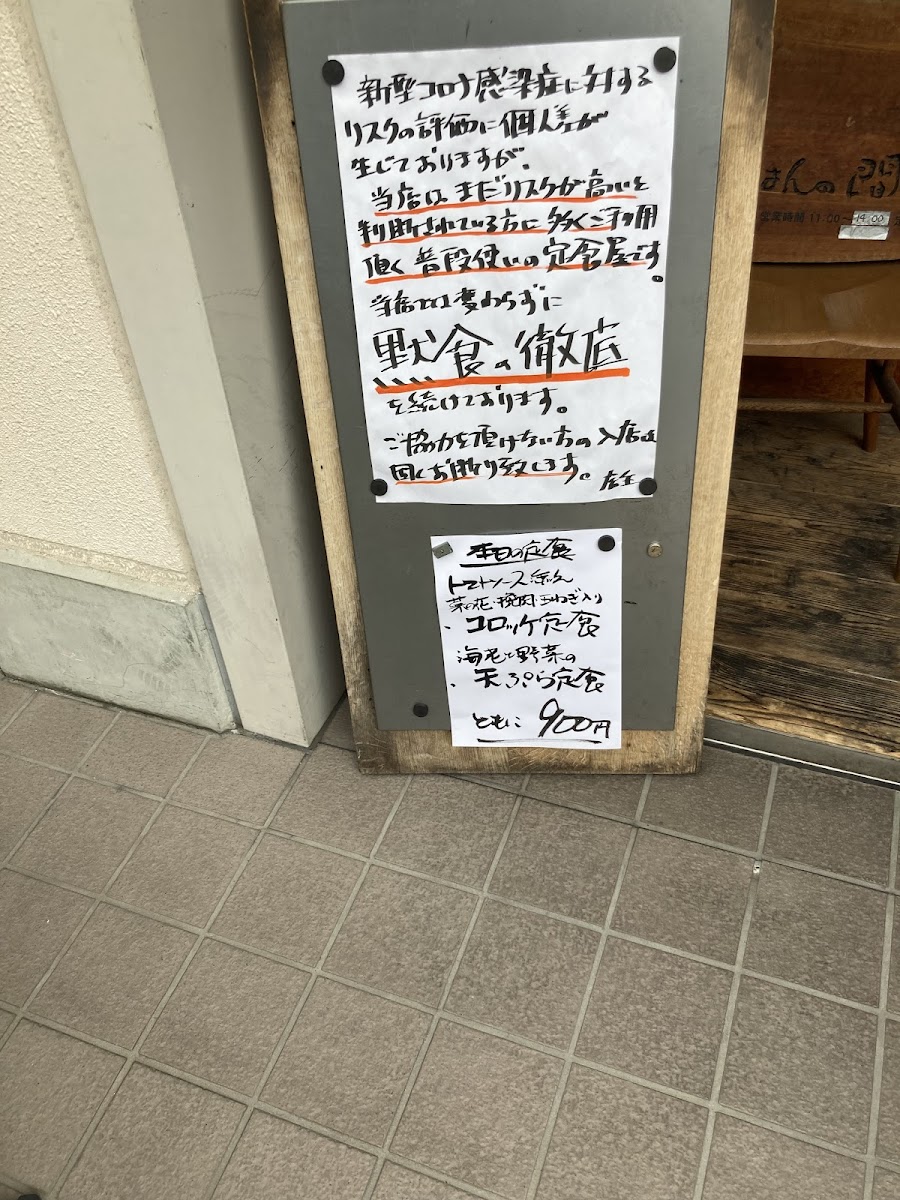 新型コロナ感染症に対する
リスクの評価に個人差が
生じておりますが、
当店は、まだリスクが高いと
判断されている方に多くご利用
頂く普段使いの定食屋です。
当店では変わらずに
黙食の徹底
を続けております。
ご協力を頂けない方の入店は
固くお断り致します。 店主
本日の定食
トマトソース
菜の花・挽肉・玉ねぎ入り
・コロッケ定食
海老と野菜の
・天ぷら定食
ともに 900円
さんの
営業時間 11:00〜14:00